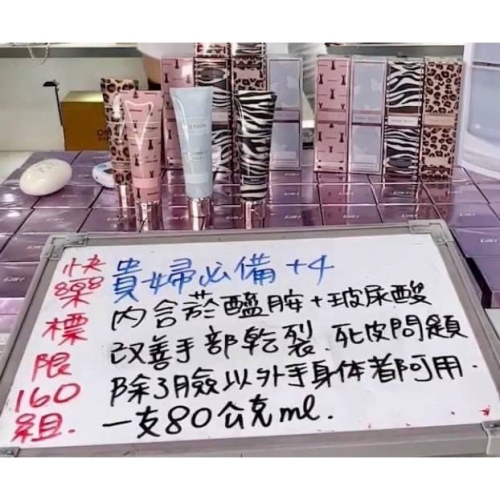 快樂標限160組.
貴婦必備+4
內含菸醯胺+玻尿酸
改善手部乾裂.死皮問題
除了臉以外手身体都可用.
一支80公克ml.